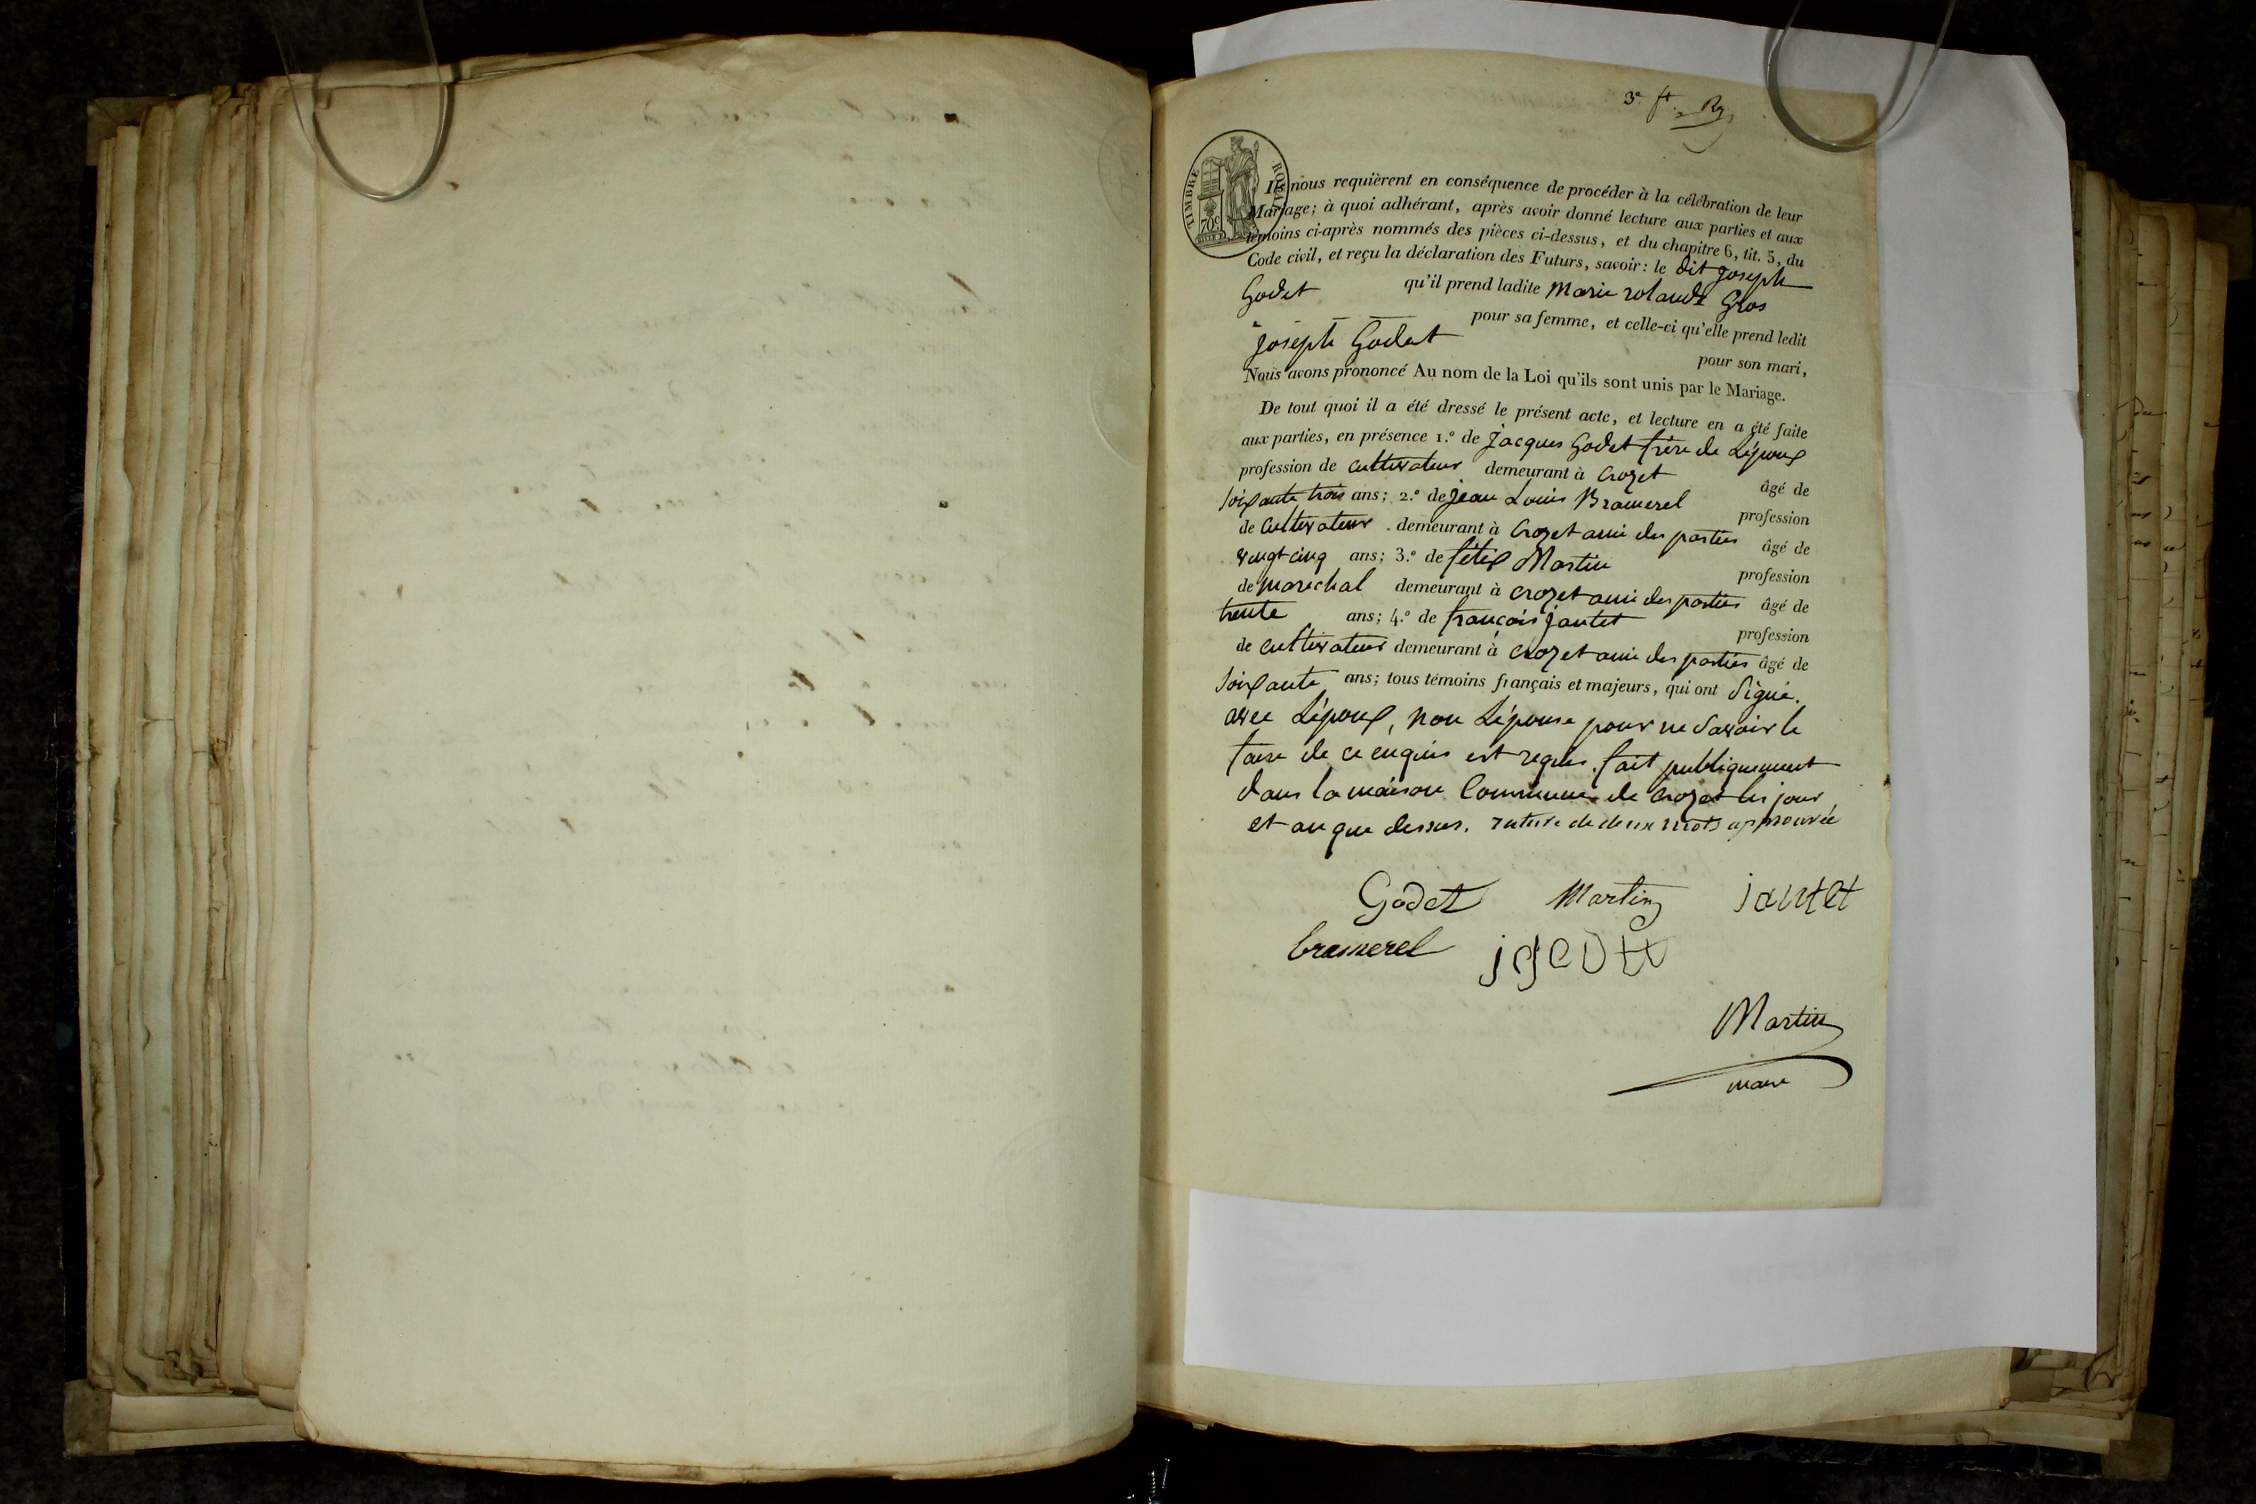 3e ft. Rg
TIMBRE ROYAL
70c
Ils nous requièrent en conséquence de procéder à la célébration de leur
Mariage; à quoi adhérant, après avoir donné lecture aux parties et aux
témoins ci-après nommés des pièces ci-dessus, et du chapitre 6, tit. 5, du
Code civil, et reçu la déclaration des Futurs, savoir: le dit joseph
Godet qu'il prend ladite Marie rolande Gros
pour sa femme, et celle-ci qu'elle prend ledit
joseph Godet pour son mari,
Nous avons prononcé Au nom de la Loi qu'ils sont unis par le Mariage.
De tout quoi il a été dressé le présent acte, et lecture en a été faite
aux parties, en présence 1.º de jacques Godet frère de Lépoux
profession de cultivateur demeurant à Crozet âgé de
soixante trois ans; 2.º de jean Louis Bramerel profession
de Cultivateur demeurant à Crozet ami des parties âgé de
vingt cinq ans; 3.º de félix Martin profession
de marechal demeurant à crozet ami des parties âgé de
trente ans; 4.º de françois jantet profession
de cultivateur demeurant à crozet ami des parties âgé de
soixante ans; tous témoins français et majeurs, qui ont signé.
avec Lépoux, non Lépouse pour ne savoir le
faire de ce enquis est requis. fait publiquement
dans la maison Commune de Crozet les jour,
et an que dessus. rature de deux mots approuvée
Godet Martin jantet
bramerel
Martin
maire